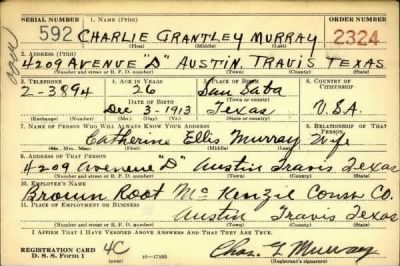 SERIAL NUMBER 1. NAME (Print) ORDER NUMBER
592 CHARLIE GRANTLEY MURRAY 2324
(First) (Middle) (Last)
2. ADDRESS (Print)
4209 AVENUE "D" AUSTIN, TRAVIS TEXAS
(Number and street or R. F. D. number) (Town) (County) (State)
3. TELEPHONE 4. AGE IN YEARS 5. PLACE OF BIRTH 6. COUNTRY OF CITIZENSHIP
2-3894 26 San Saba
(Town or county)
DATE OF BIRTH
Dec 3-1913 Texas U.S.A.
(Exchange) (Number) (Mo.) (Day) (Yr.) (State or country)
7. NAME OF PERSON WHO WILL ALWAYS KNOW YOUR ADDRESS 8. RELATIONSHIP OF THAT PERSON
Catherine Ellis Murray Wife
(Mr., Mrs., Miss) (First) (Middle) (Last)
9. ADDRESS OF THAT PERSON
4209 Avenue "D" Austin Travis Texas
(Number and street or R. F. D. number) (Town) (County) (State)
10. EMPLOYER'S NAME
Brown Root Mc Kenzie Co.
11. PLACE OF EMPLOYMENT OR BUSINESS
Austin Travis Texas
(Number and street or R. F. D. number) (Town) (County) (State)
I AFFIRM THAT I HAVE VERIFIED ABOVE ANSWERS AND THAT THEY ARE TRUE.
REGISTRATION CARD
D. S. S. Form 1 4C (over) 16-17105 Chas. G. Murray